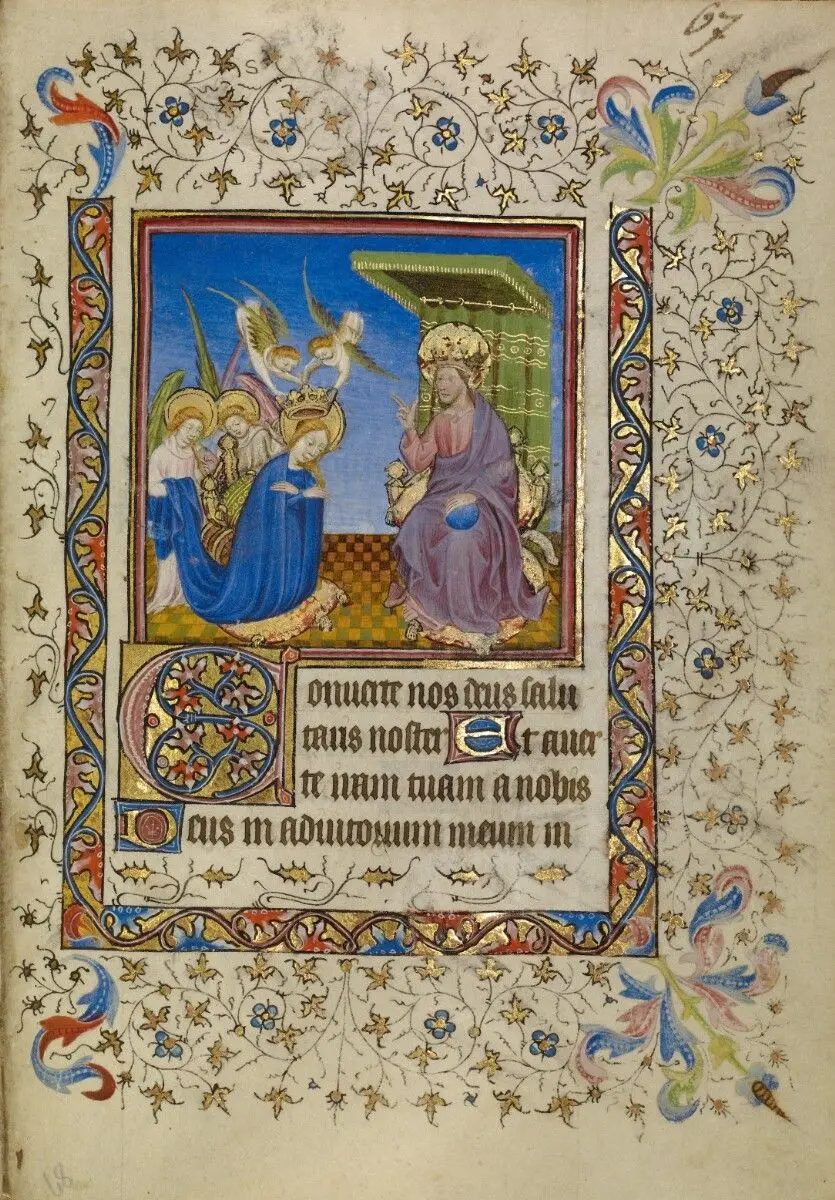 67
Conuerte nos deus salu
taris noster Et auer
te iram tuam a nobis
Deus in adiutorium meum in
68